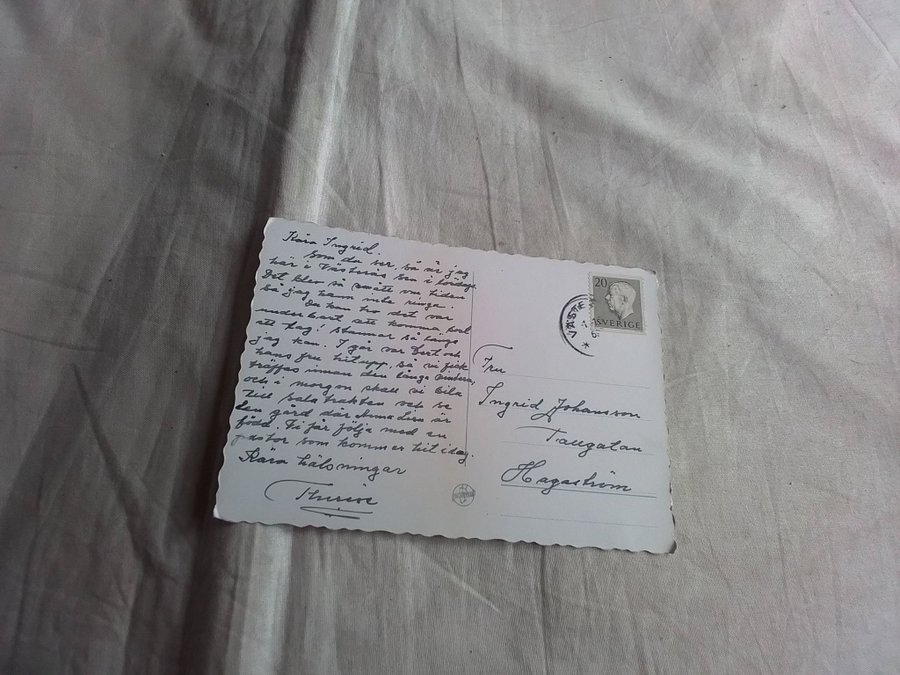 Kära Ingrid.
Som du ser, så är jag
här i Västerås sen i lördags.
Det blev så smått om tiden
så jag hann inte ringa.
Du kan tro det var
underbart att komma, bort
ett tag! Stannar så länge
jag kan. I går var Bert och
hans fru hit upp, så vi fick
träffas innan den långa vintern,
och i morgon skall vi bila
till Sala trakten och se
den gård där Anna Lisa är
född. Vi får följa med en
pastor som kommer hit idag.
Kära hälsningar
20
SVERIGE
VÄSTE
Fru
Ingrid Johansson
Hagaström